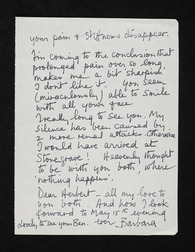 your pain & stiffness disappear.
I'm coming to the conclusion that
prolonged pain over so long,
makes me a bit 'sheepish'
I don't like it. You seem
(miraculously) able to smile
with all your face
I really long to see you. My
silence has been caused by
2 more renal attacks otherwise
I would have arrived at
Stonegrave! Heavenly thought
to be with you both, where
'nothing happens'.
Dear Herbert – all my love to
you both. And how I look
forward to May 15th evening
lovely to see you Ben. ever Barbara